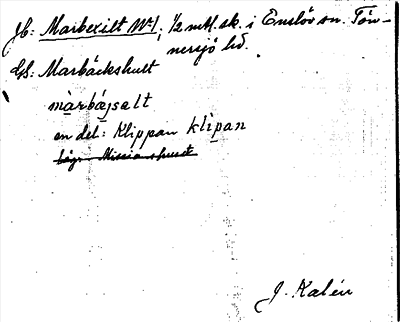 Jb: Marbexilt No 1, 1/2 mtl. sk. i Enslöv sn. Tön-
nersjö hd.
GS: Marbäckshult
màrba̱jsalt
en del: Klippan klìpan
J. Kalén